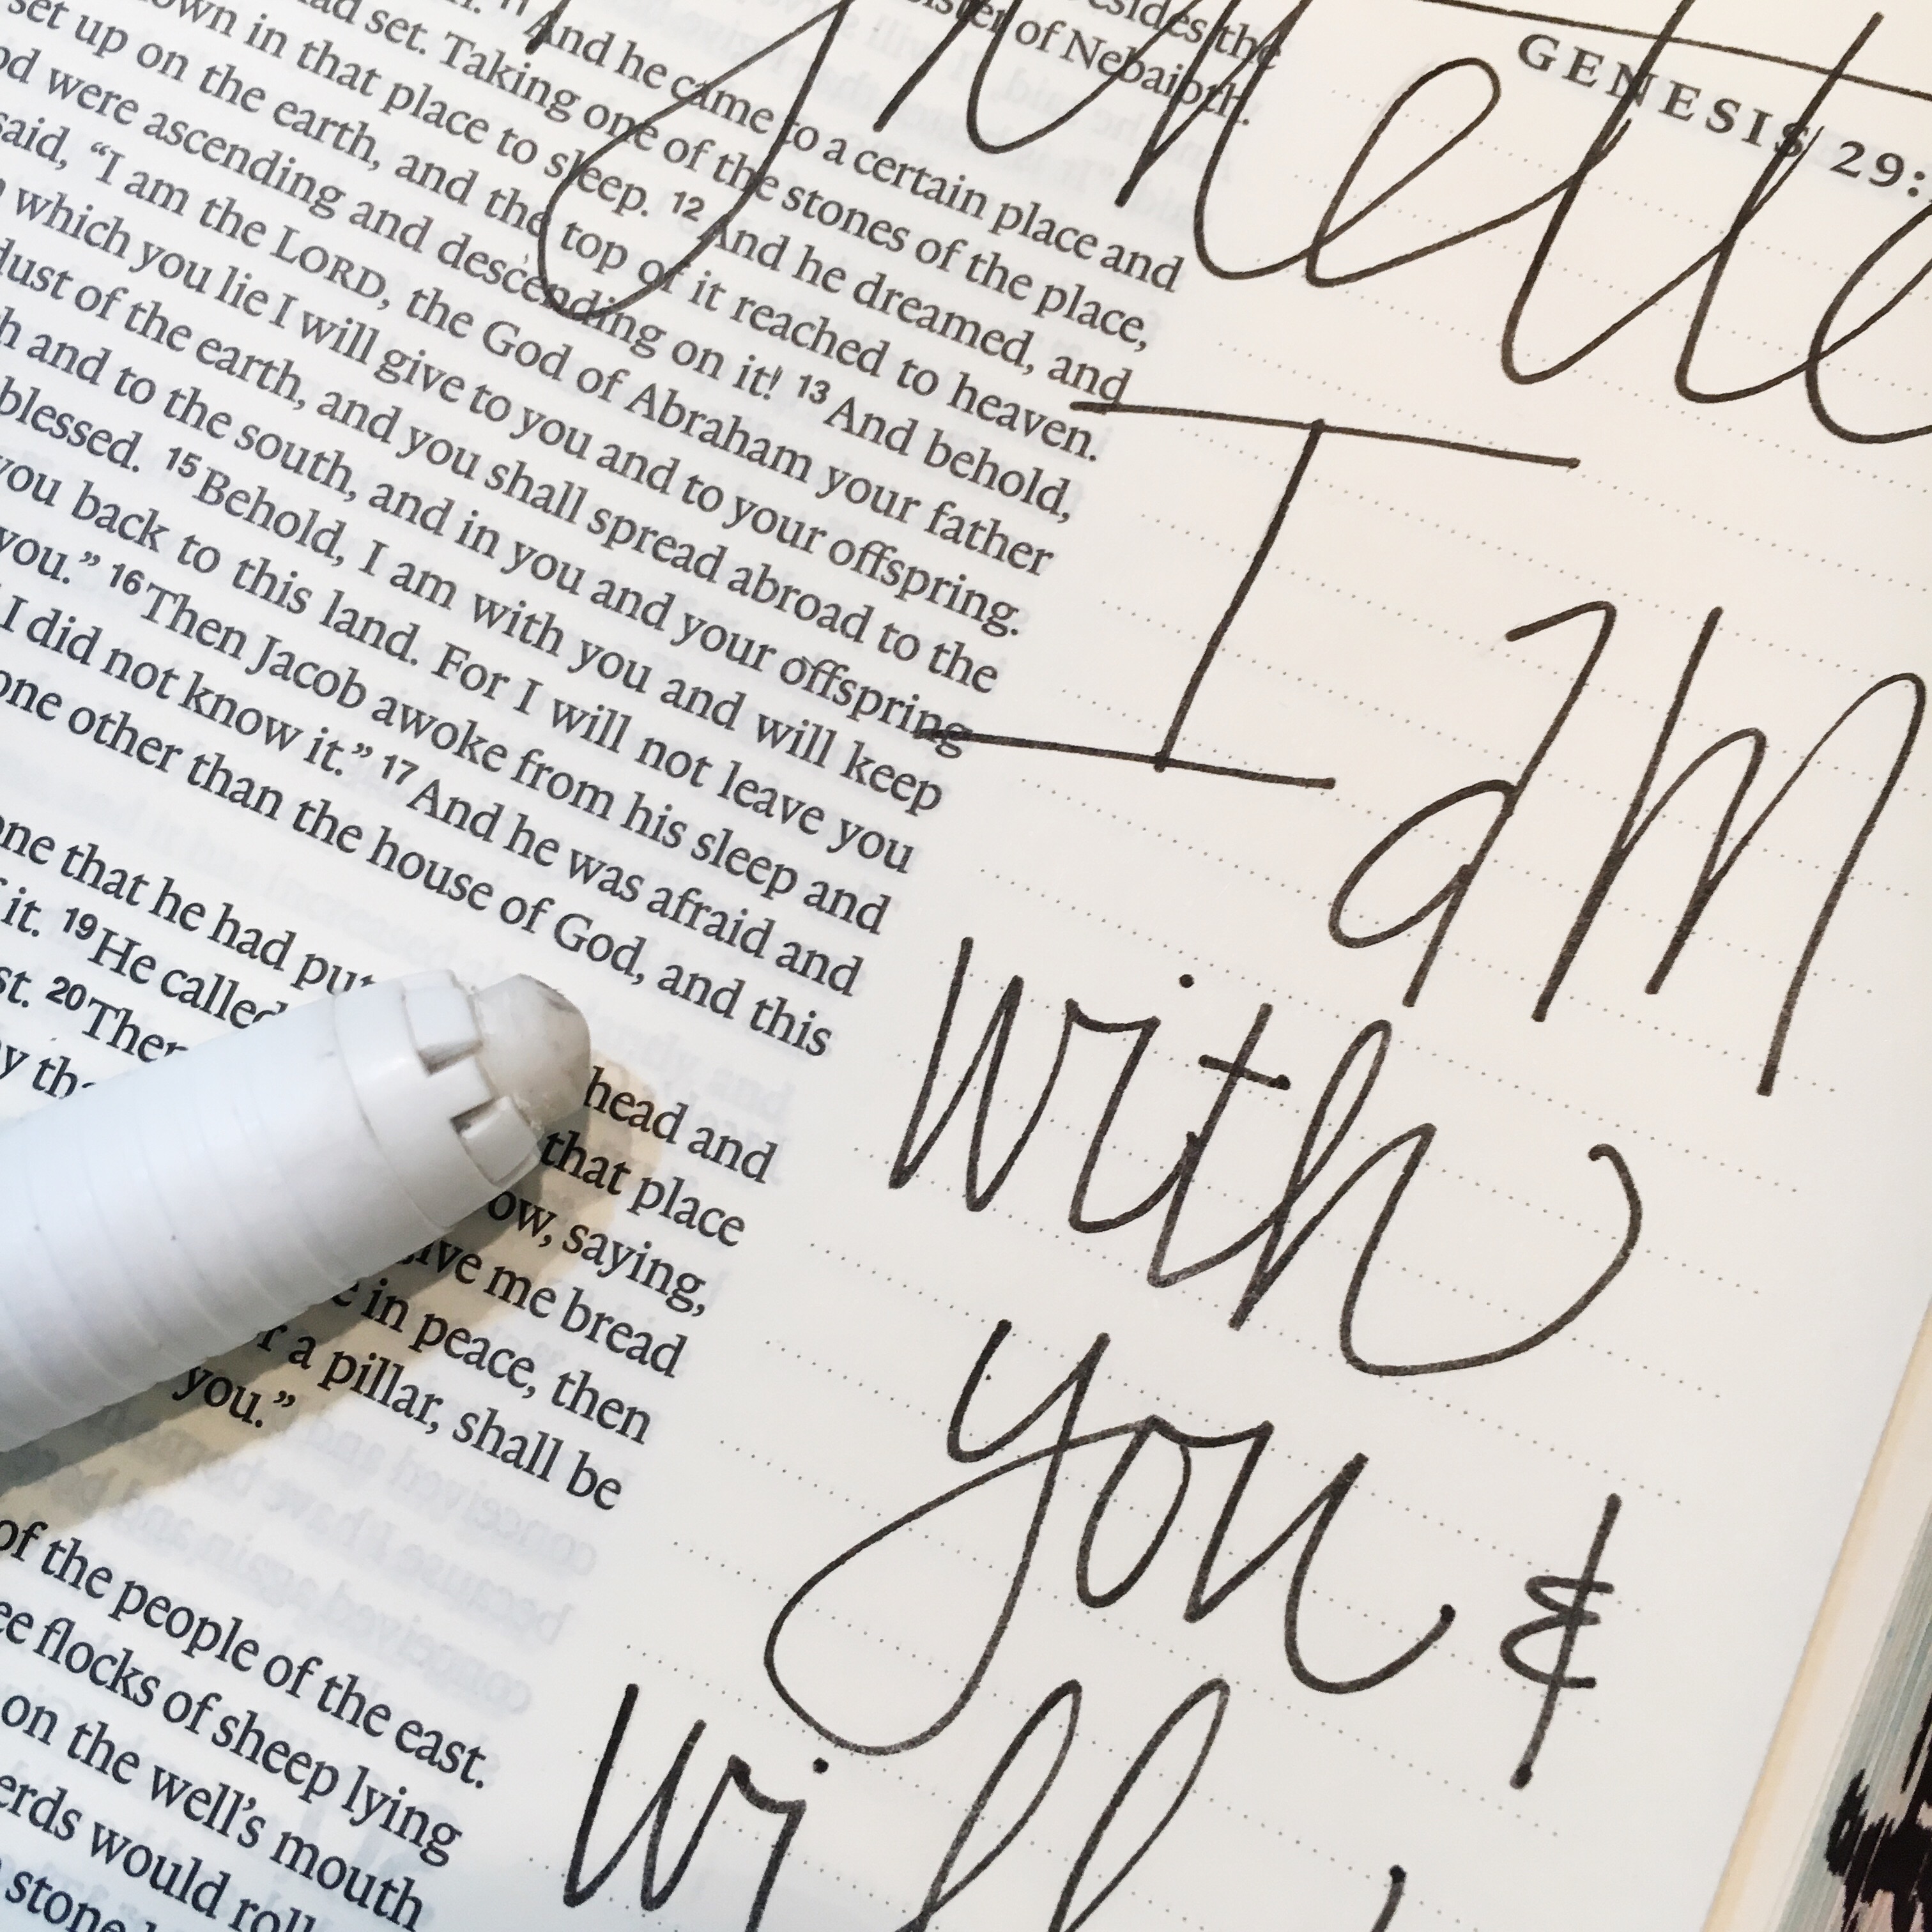 besides the
sister of Nebaioth.
GENESIS 29:
11 And he came to a certain place and
had set. Taking one of the stones of the place,
in that place to sleep. 12 And he dreamed, and
set up on the earth, and the top of it reached to heaven.
were ascending and descending on it! 13 And behold,
said, “I am the LORD, the God of Abraham your father
which you lie I will give to you and to your offspring.
dust of the earth, and you shall spread abroad to the
and to the south, and in you and your offspring
blessed. 15 Behold, I am with you and will keep
you back to this land. For I will not leave you
you.” 16 Then Jacob awoke from his sleep and
I did not know it.” 17 And he was afraid and
other than the house of God, and this
that he had put head and
it. 19 He called that place
20 saying,
give me bread
in peace, then
a pillar, shall be
you.”
of the people of the east.
flocks of sheep lying
on the well’s mouth
would roll
stone
I
am
with
you &
will